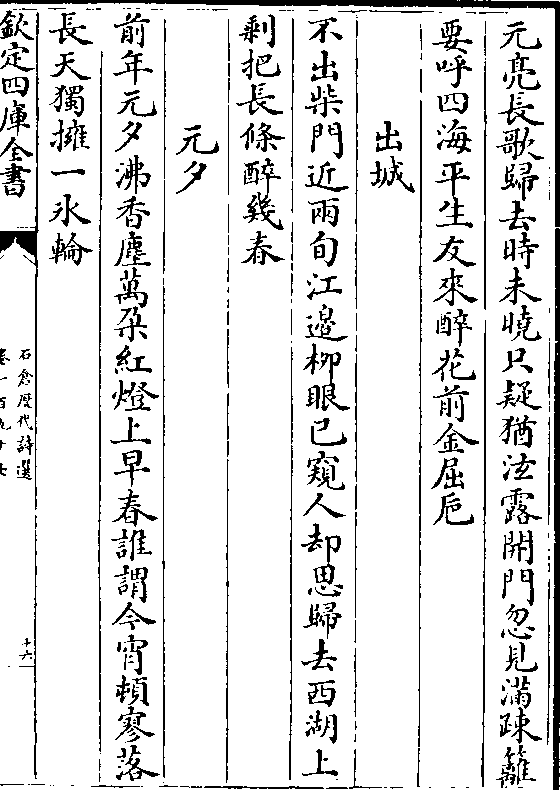 元亮長歌歸去時未曉只疑猶泫露開門忽見滿疎籬
要呼四海平生友來醉花前金屈卮
出城
不出柴門近兩旬江邉柳眼已窺人却思歸去西湖上
剰把長條醉幾春
元夕
前年元夕沸香塵萬朶紅燈上早春誰謂今宵頓寥落
長天獨擁一氷輪
欽定四庫全書
石倉歴代詩選
十六